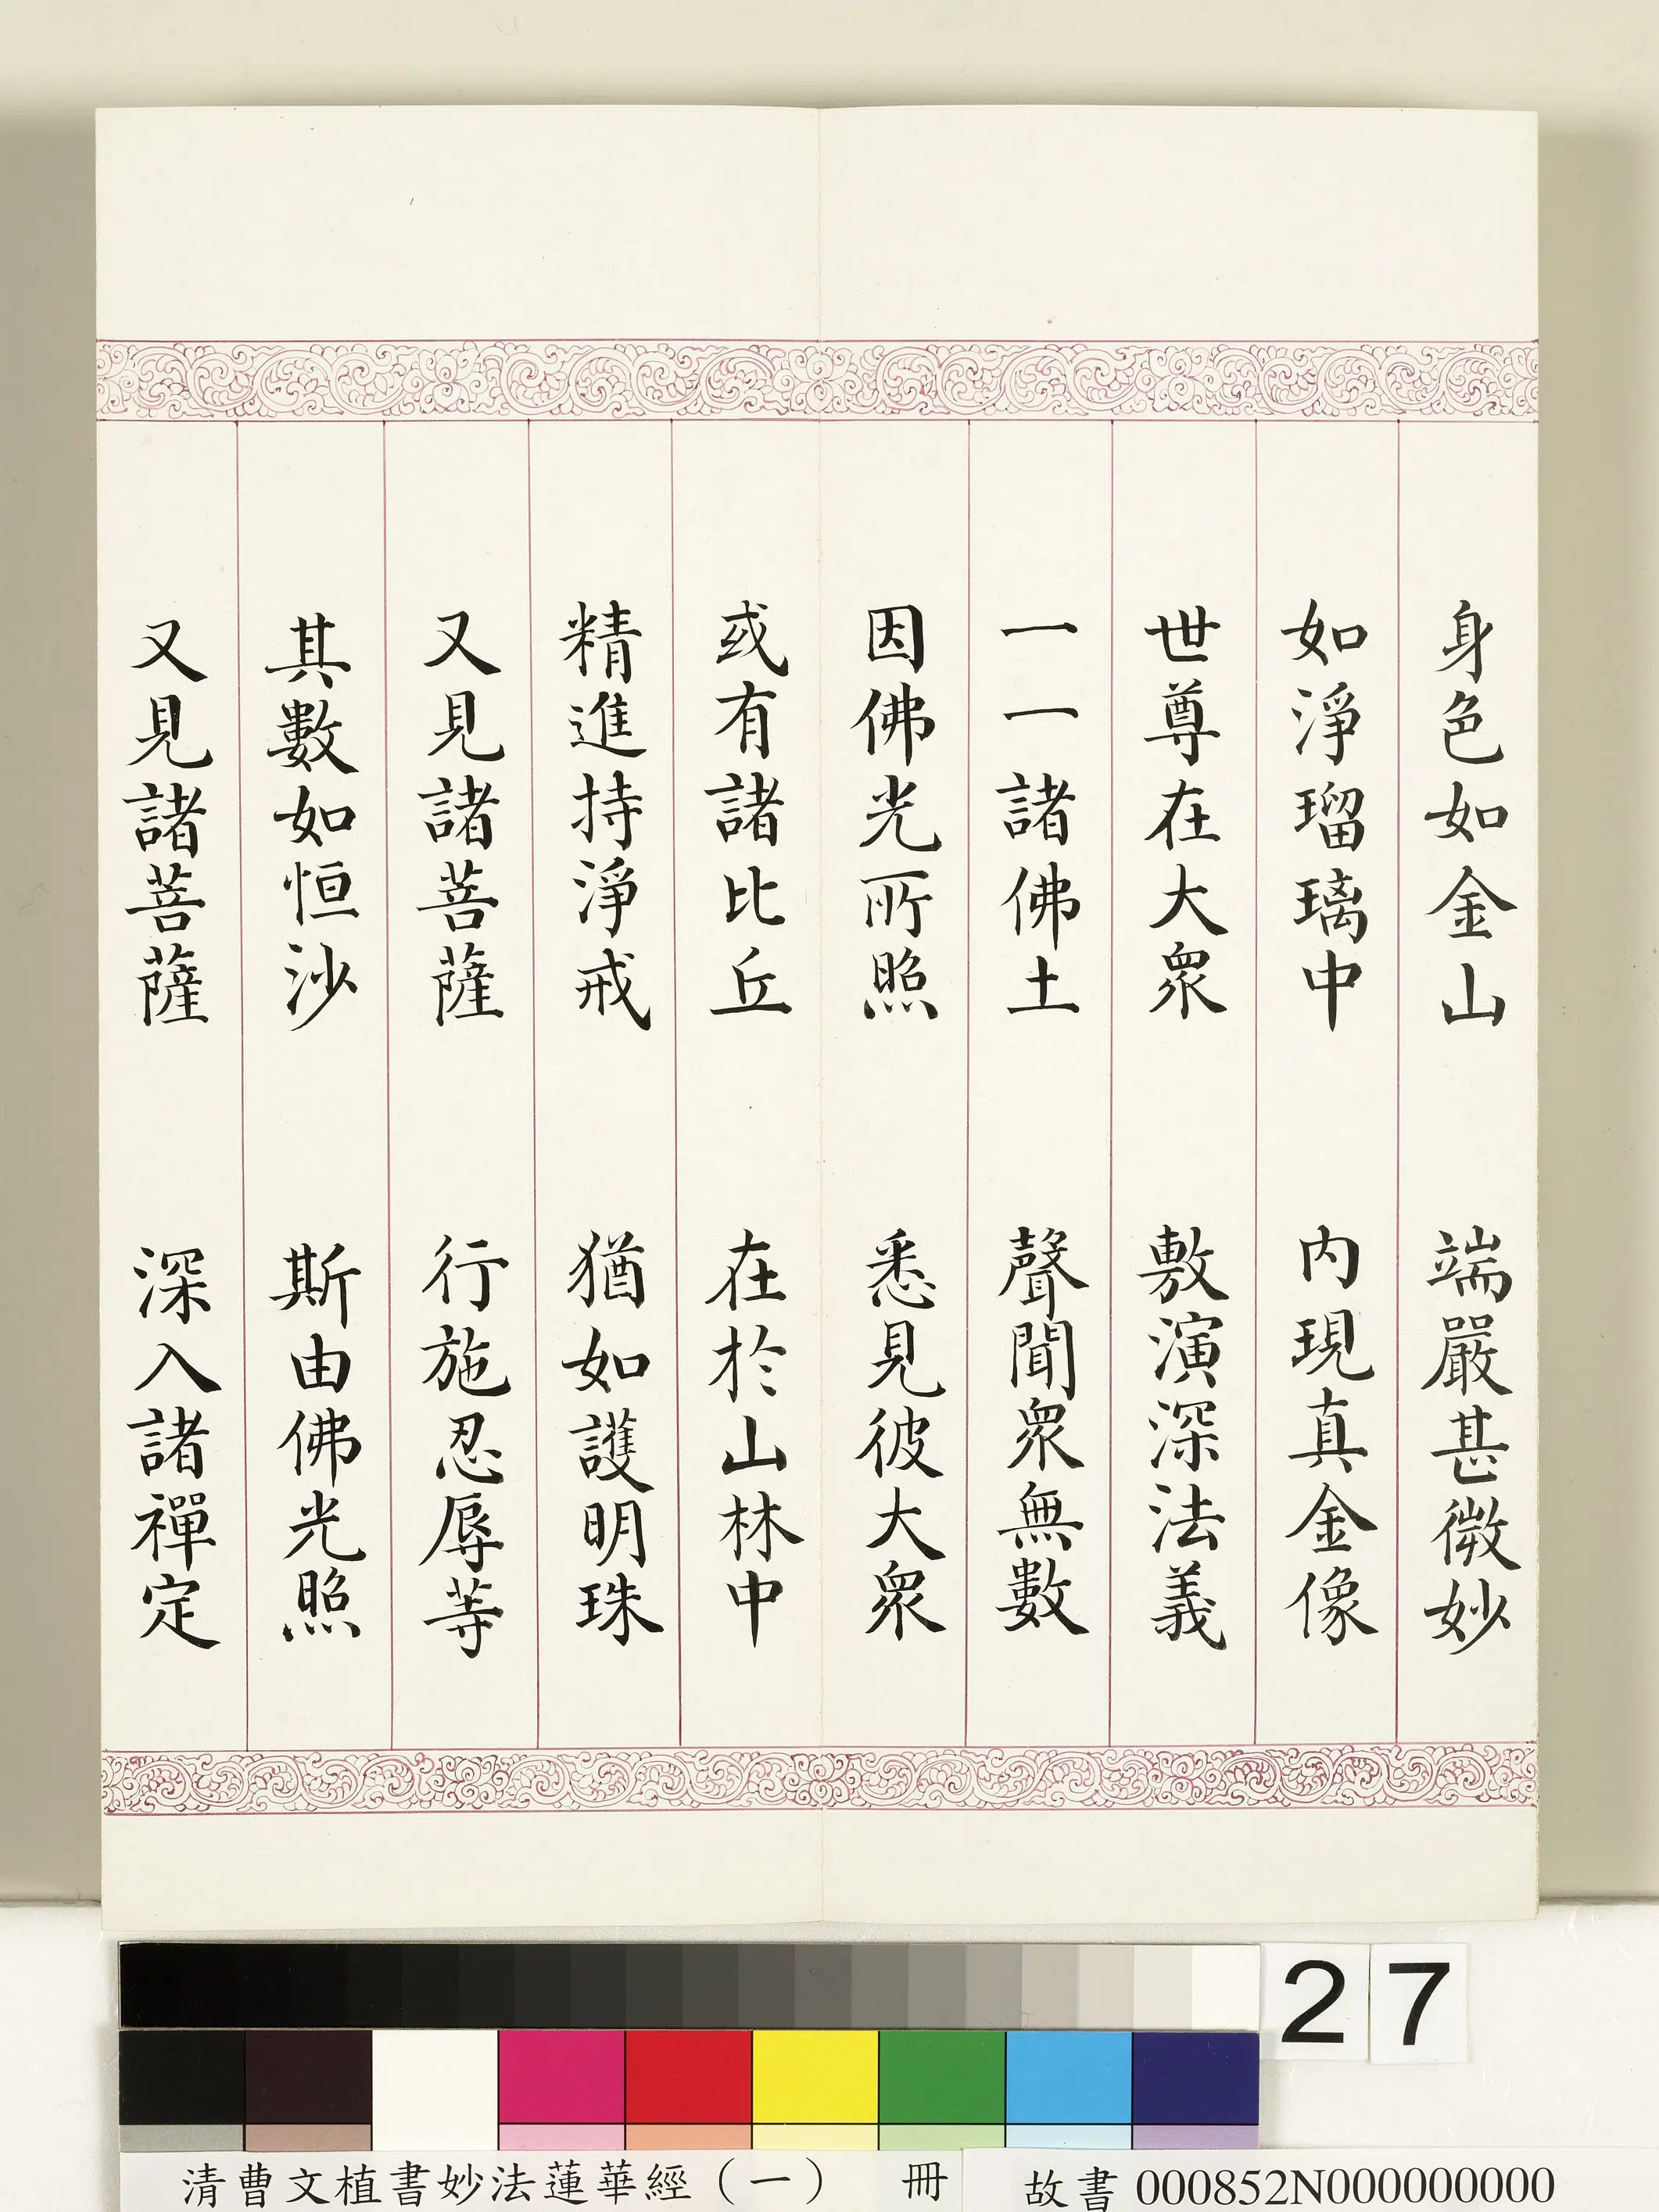 身色如金山　端嚴甚微妙
如淨瑠璃中　內現真金像
世尊在大衆　敷演深法義
一一諸佛土　聲聞衆無數
因佛光所照　悉見彼大衆
或有諸比丘　在於山林中
精進持淨戒　猶如護明珠
又見諸菩薩　行施忍辱等
其數如恒沙　斯由佛光照
又見諸菩薩　深入諸禪定
27
清曹文植書妙法蓮華經（一）　冊　故書 000852N000000000